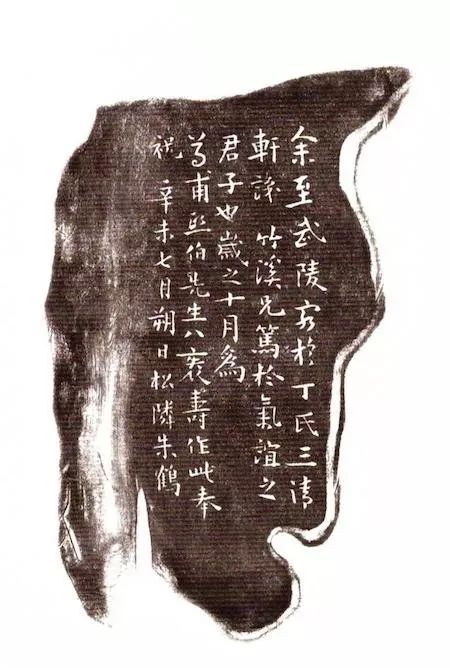 余至武陵客於丁氏三清
軒識竹溪兄篤於氣誼之
君子也歲之十月為
尊甫熙伯先生八袠壽作此奉
祝 辛未七月朔日松隣朱鶴